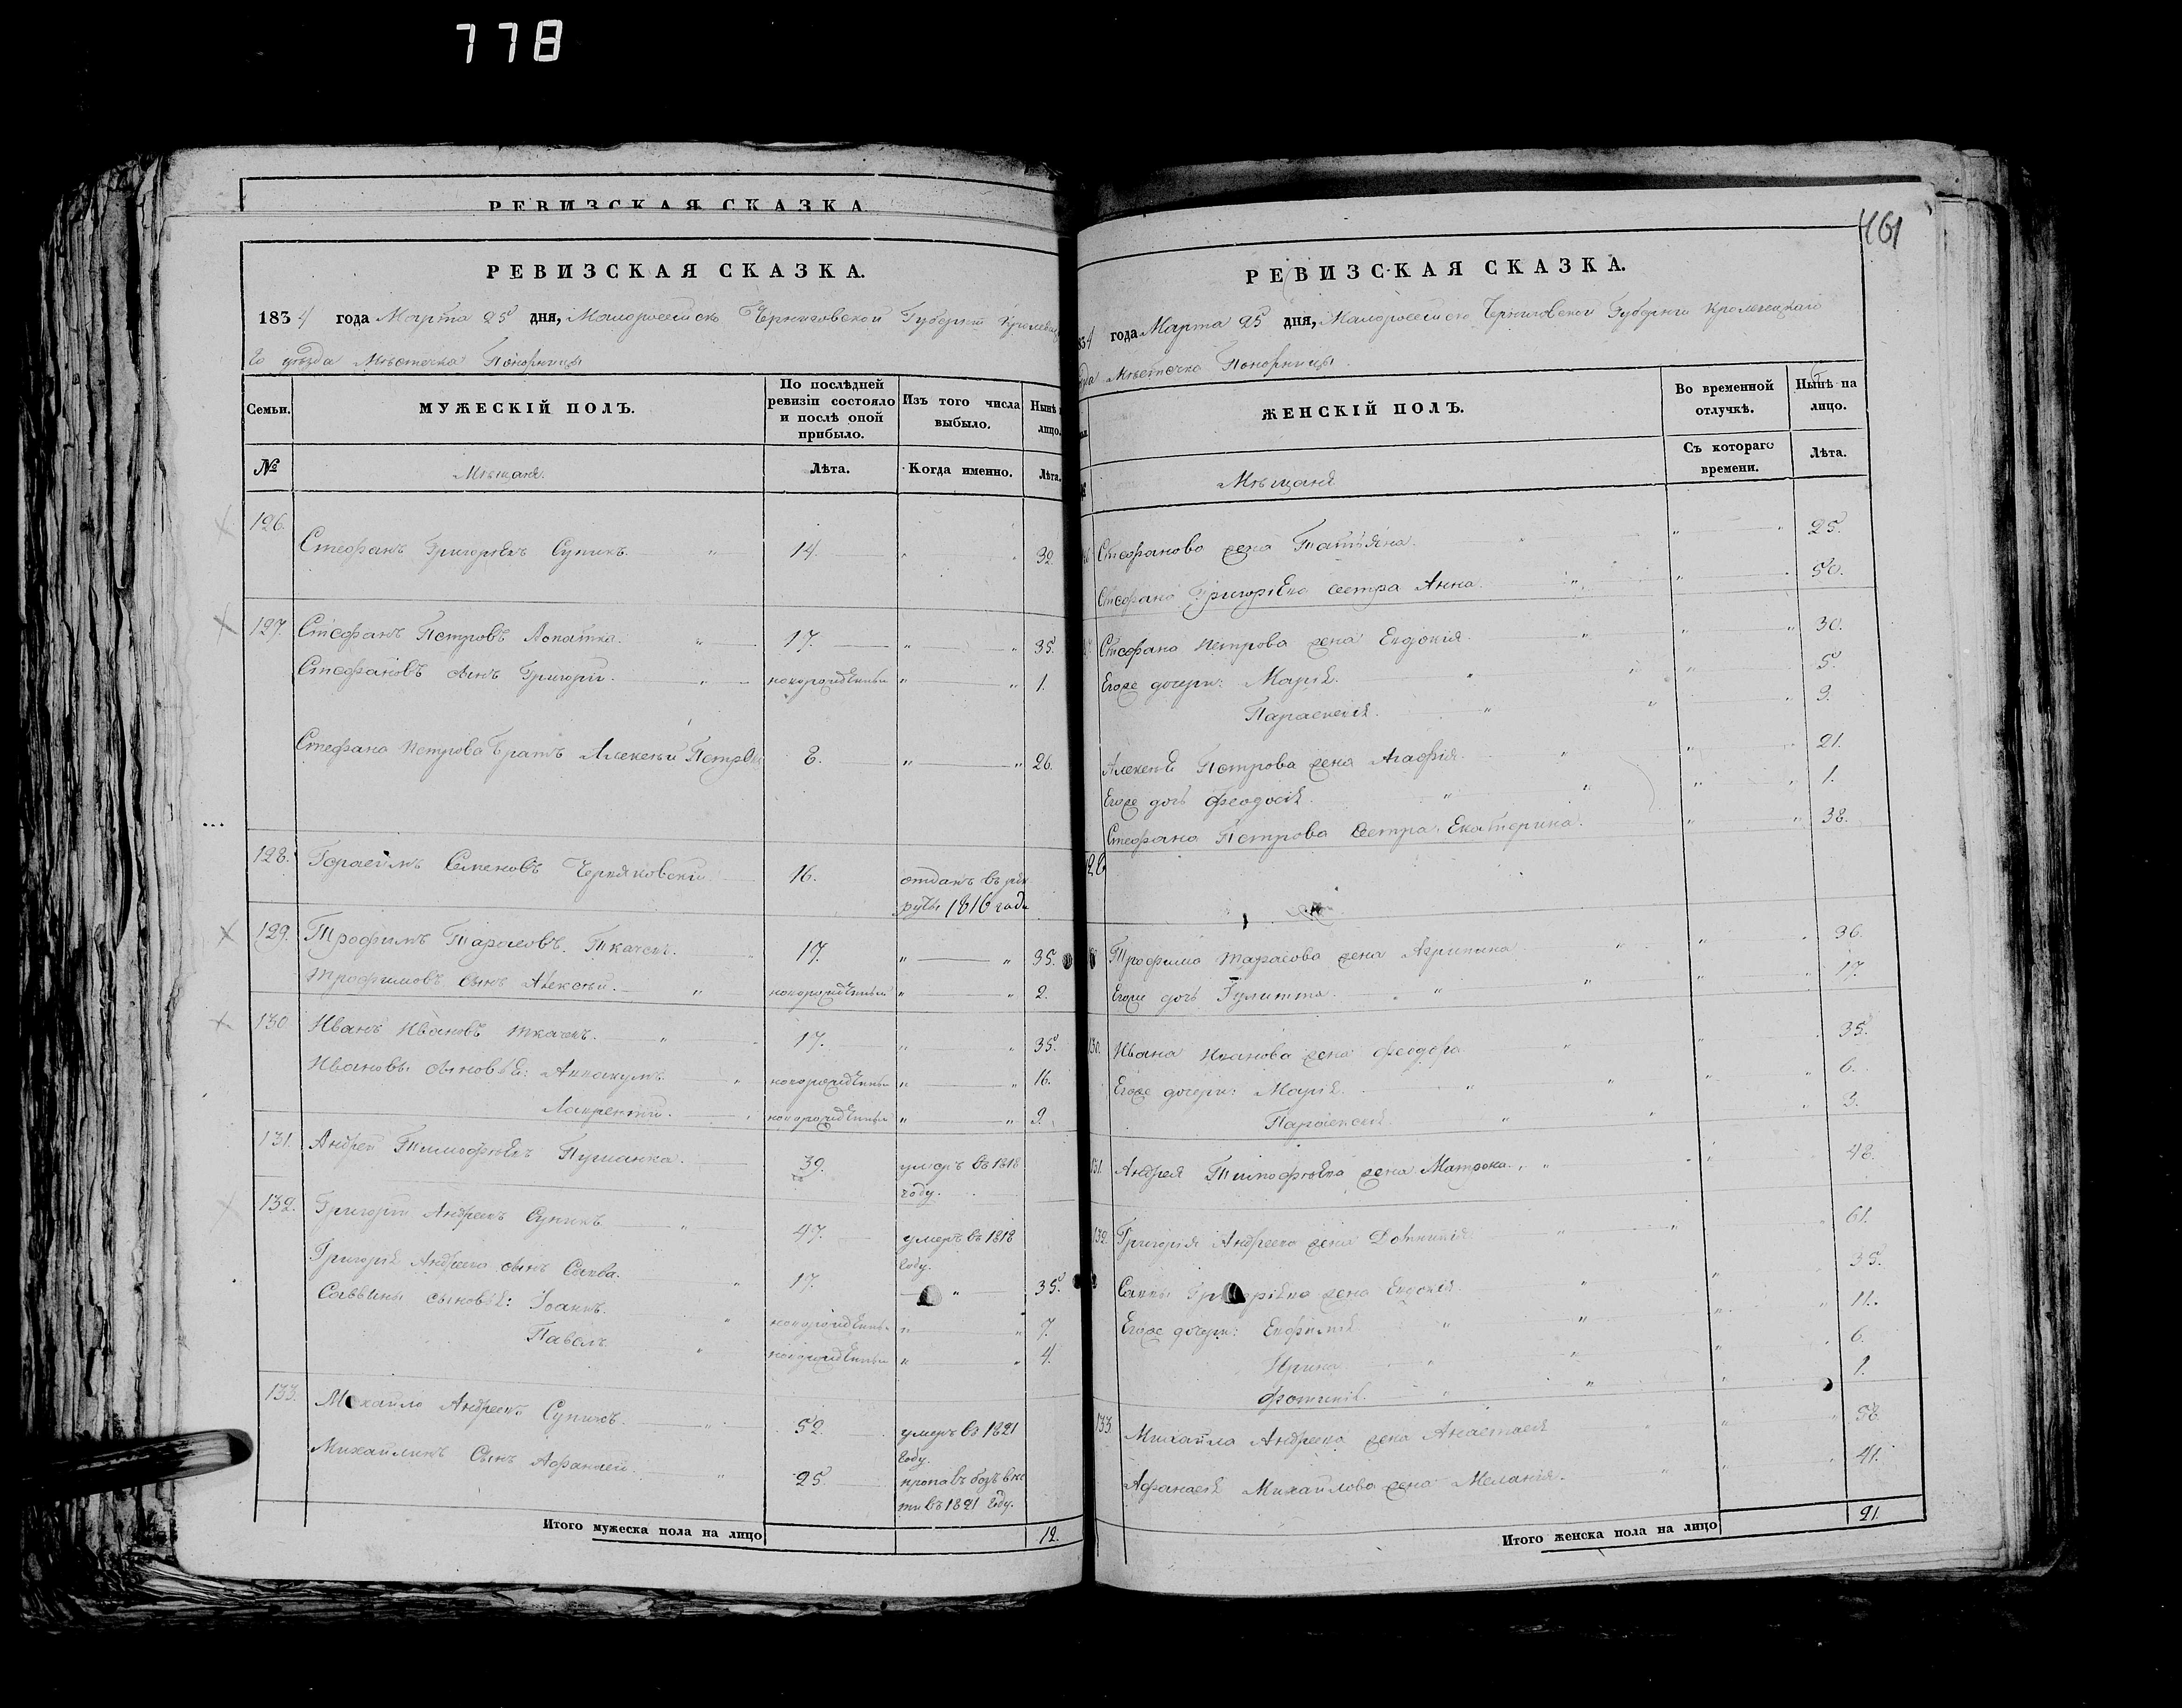 778
РЕВИЗСКАЯ СКАЗКА
РЕВИЗСКАЯ СКАЗКА.
1834 года Марта 25 дня, Малороссійско Черниговской Губерніи Кролевец
го уѣзда Мѣстечка Понорницы
Семьи. МУЖЕСКІЙ ПОЛЪ. По послѣдней ревизіи состояло и послѣ оной прибыло. Изъ того числа выбыло. Нынѣ лицо.
№ Мѣщане. Лѣта. Когда именно. Лѣта.
126. Стефанъ Григорьевъ Супикъ. 14. 32.
127. Стефанъ Петровъ Лопатка. 17. 35.
Стефановъ сынъ Григорій. новорожденный 1.
Стефана Петрова братъ Алексѣй Петровъ 8. 26.
128. Герасимъ Семеновъ Черняковскій 16. отданъ въ рек
руты 1816 года
129. Трофимъ Тарасовъ Ткачекъ. 17. 35.
Трофимовъ сынъ Алексѣй. новорожденный 2.
130. Иванъ Ивановъ Ткачекъ. 17. 35.
Ивановы сыновья: Аввакумъ. новорожденный 16.
Лаврентій. новорожденный 9.
131. Андрей Тимофѣевъ 39. умеръ въ 1818
году.
132. Григорій Андреевъ Супикъ 47. умеръ въ 1818
году.
Григорія Андреева сынъ Савва. 17. 35.
Саввины сыновья: Іоаннъ. новорожденный 7.
Павелъ новорожденный 4.
133. Михайло Андреевъ Супикъ. 52. умеръ въ 1821
году.
Михайловъ Сынъ Афанасій. 25. пропавъ безъ вѣс
ти въ 1821 году.
Итого мужеска пола на лицо 12.
461
РЕВИЗСКАЯ СКАЗКА.
834 года Марта 25 дня, Малороссійско Черниговской Губерніи Кролевецкаго
зда Мѣстечка Понорницы.
ЖЕНСКІЙ ПОЛЪ. Во временной отлучкѣ. Нынѣ на лицо.
Мѣщане Съ котораго времени. Лѣта.
Стефанова жена Татьяна. 25.
Стефана Григорьева сестра Анна. 50.
Стефана Петрова жена Евдокія. 30.
Егоже дочери: Марія. 5.
Параскевія. 3.
Алексѣя Петрова жена Агафія. 21.
Егоже дочь Феодосія. 1.
Стефана Петрова сестра Екатерина. 38.
128
Трофима Тарасова жена Агрипина 36.
Егоже дочь Гулитта. 17.
130. Ивана Иванова жена Феодора 35.
Егоже дочери: Марія. 6.
Параскевія. 3.
131. Андрея Тимофѣева жена Матрона. 48.
132. Григорія Андреева жена Домникія. 61.
Саввы Григорієва жена Евдокія. 35.
Егоже дочери: Евфимія 11.
Ирина 6.
Фотинія. 1.
133. Михайла Андреева жена Анастасія 58.
Афанасія Михайлова жена Меланія. 41.
Итого женска пола на лицо 21.